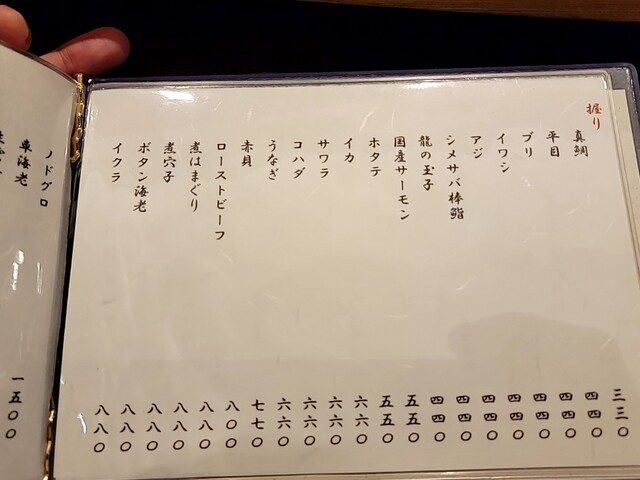 握り
真鯛
平目
ブリ
イワシ
アジ
シメサバ棒鮨
龍の玉子
国産サーモン
ホタテ
イカ
サワラ
コハダ
うなぎ
赤貝
ローストビーフ
煮はまぐり
煮穴子
ボタン海老
イクラ
三三〇
四四〇
四四〇
四四〇
四四〇
四四〇
四四〇
四四〇
五五〇
五五〇
六六〇
六六〇
六六〇
六六〇
七七〇
八〇〇
八八〇
八八〇
八八〇
八八〇
八八〇
ノドグロ
車海老
一五〇〇